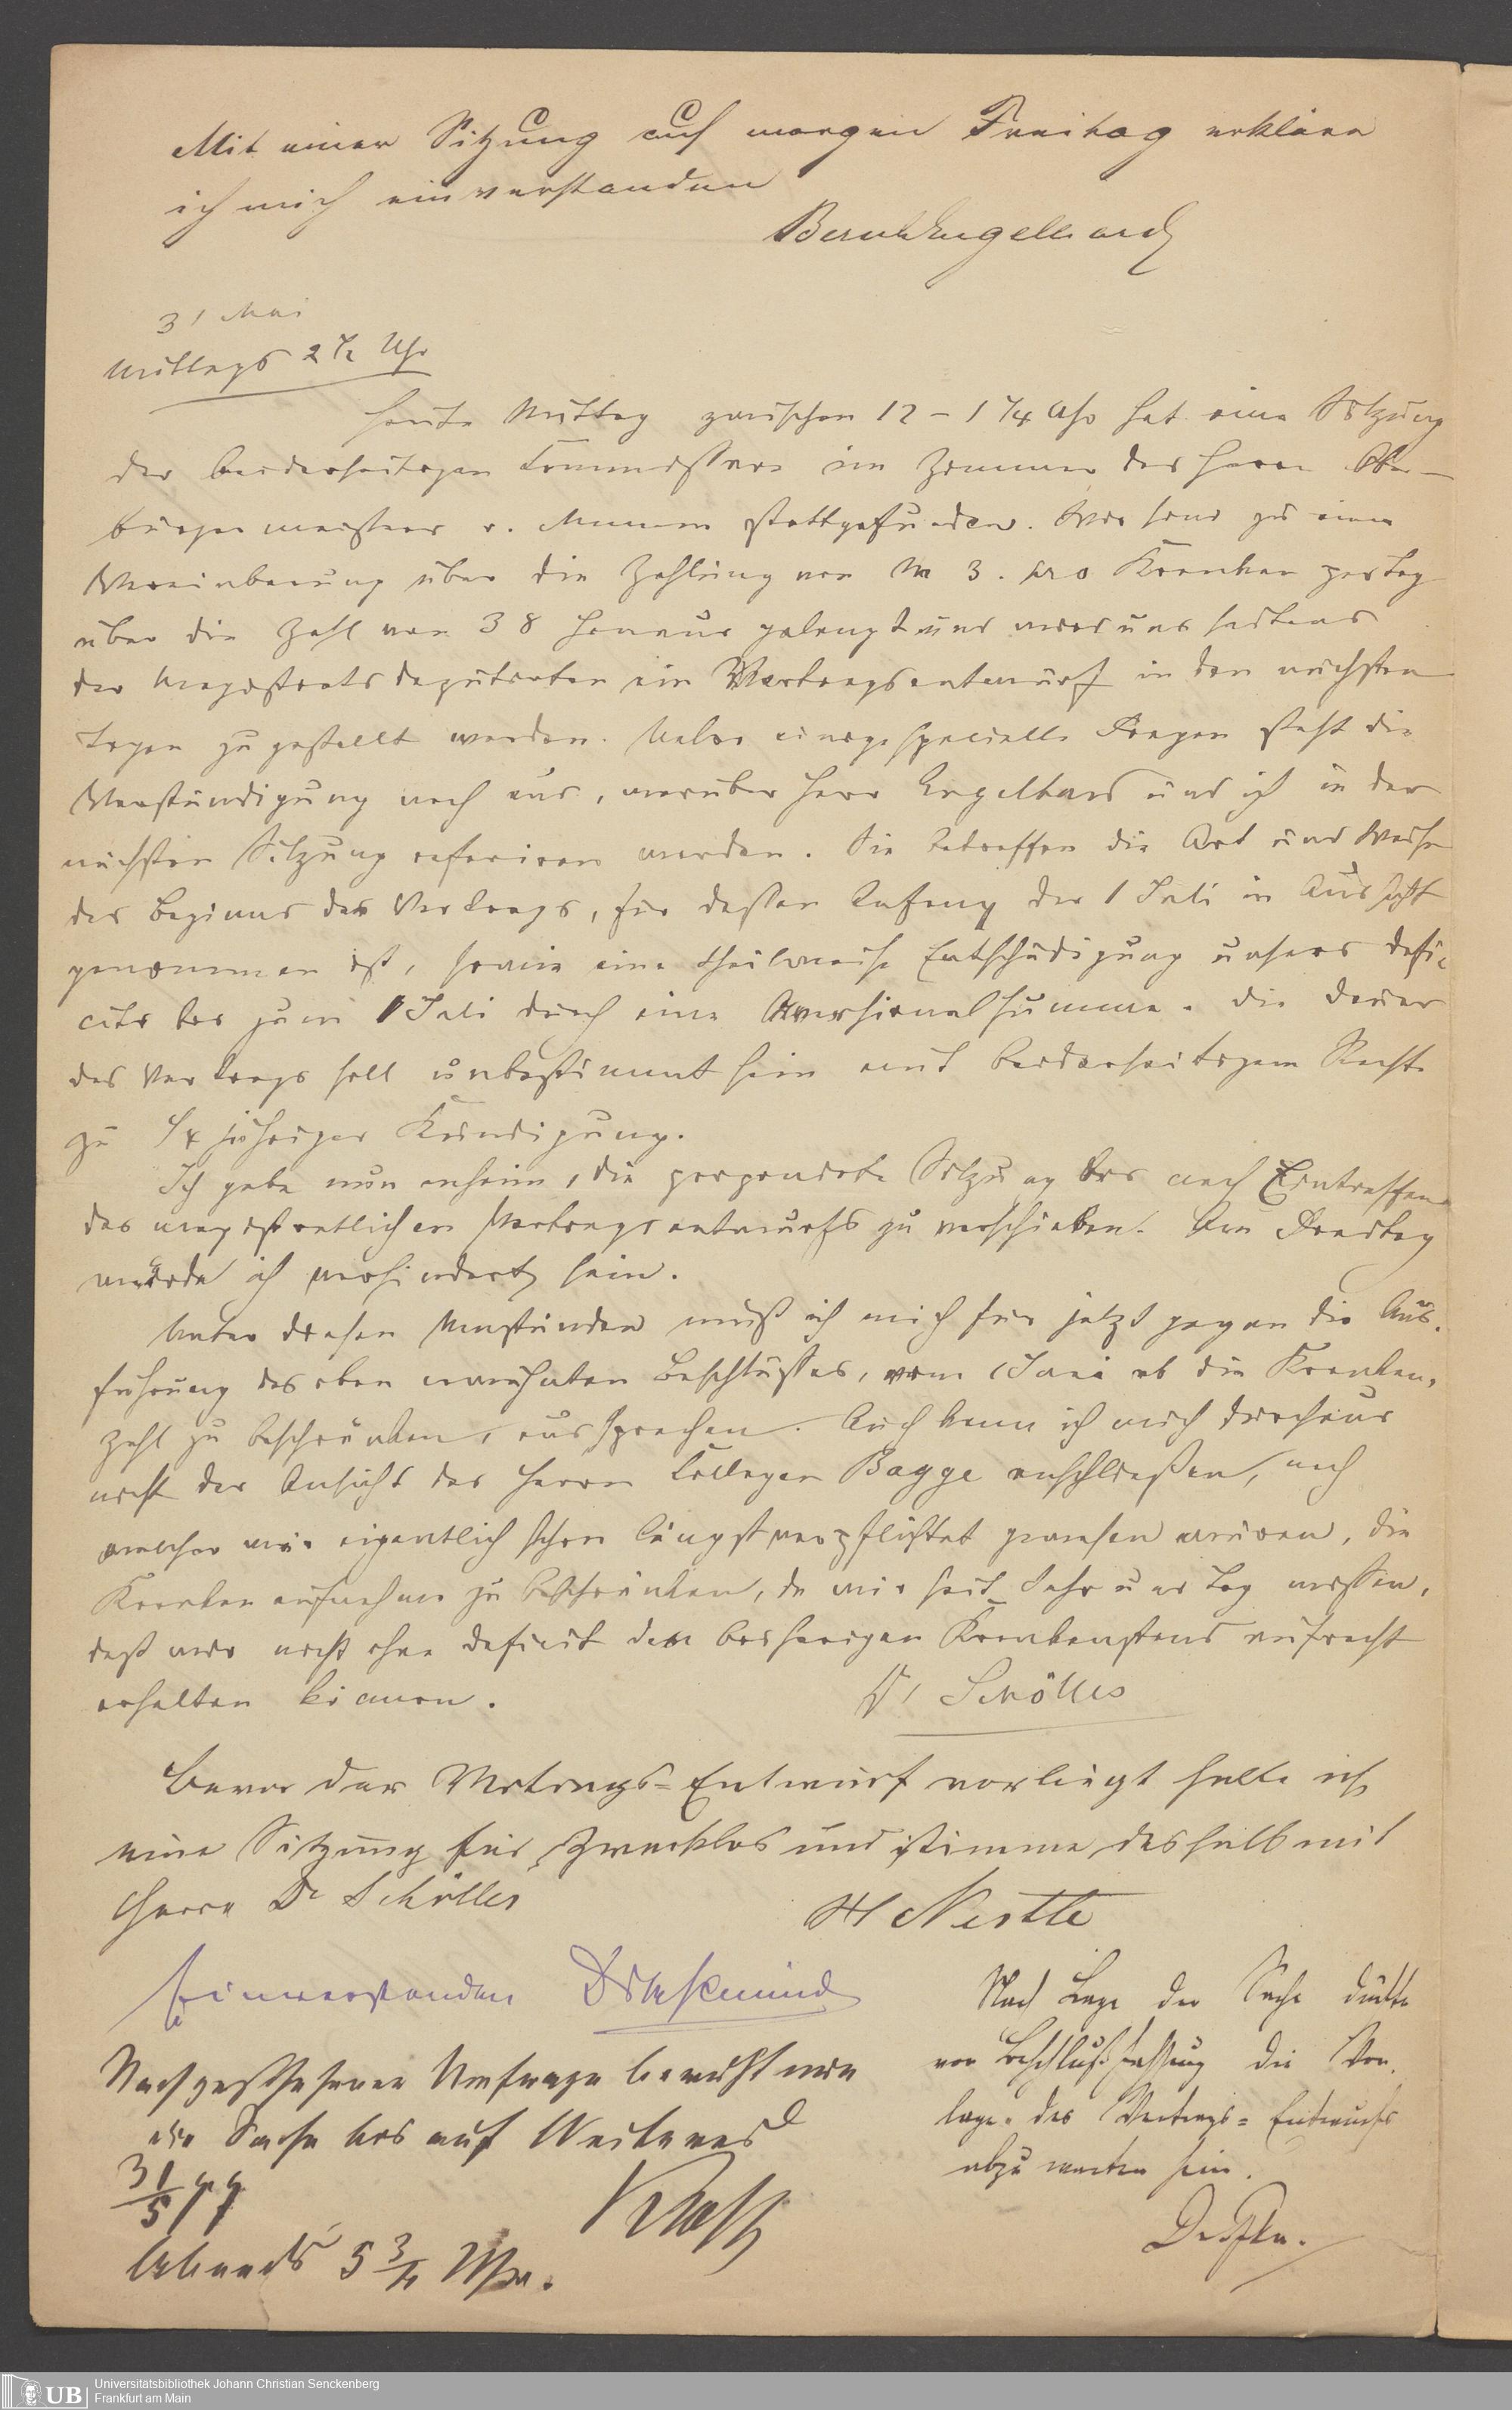 Mit einer Sitzung auf morgen Freitag erkläre
ich mich einverstanden
Bernh Engelhard
31 Mai
Mittags 2 ½ Uhr
Heute Mittag zwischen 12 – 1 ¼ Uhr hat eine Sitzung
der beiderseitigen Commissare im Zimmer des Herrn Ober-
bürgermeisters v. Mumm stattgefunden. Wir sind zu einer
Vereinbarung über die Zahlung von M 3. pro Kranken per Tag
über die Zahl von 38 hinaus gelangt und wird uns seitens
der Magistratsdeputirten ein Vertragsentwurf in den nächsten
Tagen zugestellt werden. Ueber einige specielle Fragen steht die
Verständigung noch aus, worüber Herr Engelhard und ich in der
nächsten Sitzung referiren werden. Sie betreffen die Art und Weise
des Beginns des Vertrags, für dessen Anfang der 1 Juli in Aussicht
genommen ist, sowie eine theilweise Entschädigung unsers Defi-
cits bis zum 1 Juli durch eine Aversionalsumme. Die Dauer
des Vertrags soll unbestimmt sein mit beiderseitigem Recht
zu ¼ jähriger Kündigung.
Ich gebe nun anheim, die projectirte Sitzung bis nach Eintreffen
des magistratlichen Vertragsentwurfs zu verschieben. Am Freitag
würde ich verhindert sein.
Unter diesen Umständen muß ich mich für jetzt gegen die Aus-
führung des oben erwähnten Beschlusses, vom 1 Juni ab die Kranken-
zahl zu beschränken, aussprechen. Auch kann ich mich durchaus
nicht der Ansicht des Herrn Collegen Bagge anschließen, nach
welcher wir eigentlich schon längst verpflichtet gewesen wären, die
Krankenaufnahme zu beschränken, da wir seit Jahr und Tag wissen,
daß wir nicht ohne Deficit den bisherigen Krankenstand aufrecht
erhalten können.
Dr Schölles
Bevor der Vertrags-Entwurf vorliegt halte ich
eine Sitzung für zwecklos und stimme deshalb mit
Herrn Dr Schölles
H Nestle
Einverstanden
Nach Lage der Sache dürfte
vor Beschlußfassung die Vor-
lage des Vertrags-Entwurfs
abzuwarten sein.
Nach geschehener Umfrage beruht nun
die Sache bis auf Weiteres
31/5 77
Abends 5 ¾ Uhr.
Universitätsbibliothek Johann Christian Senckenberg
Frankfurt am Main
UB